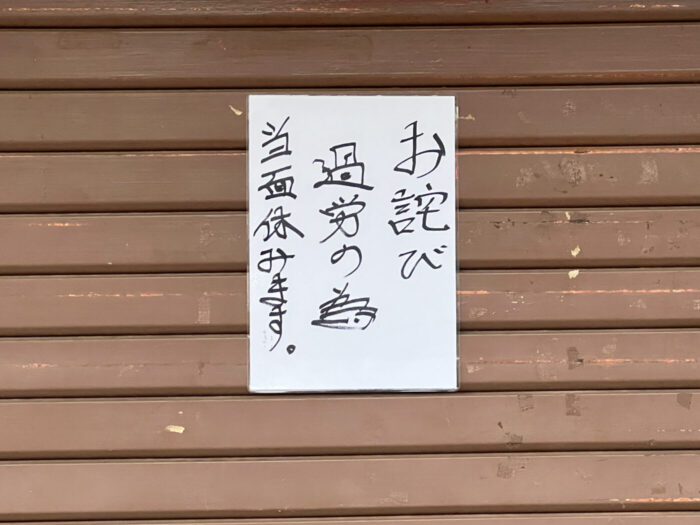 お詫び
過労の為
当面休みます。